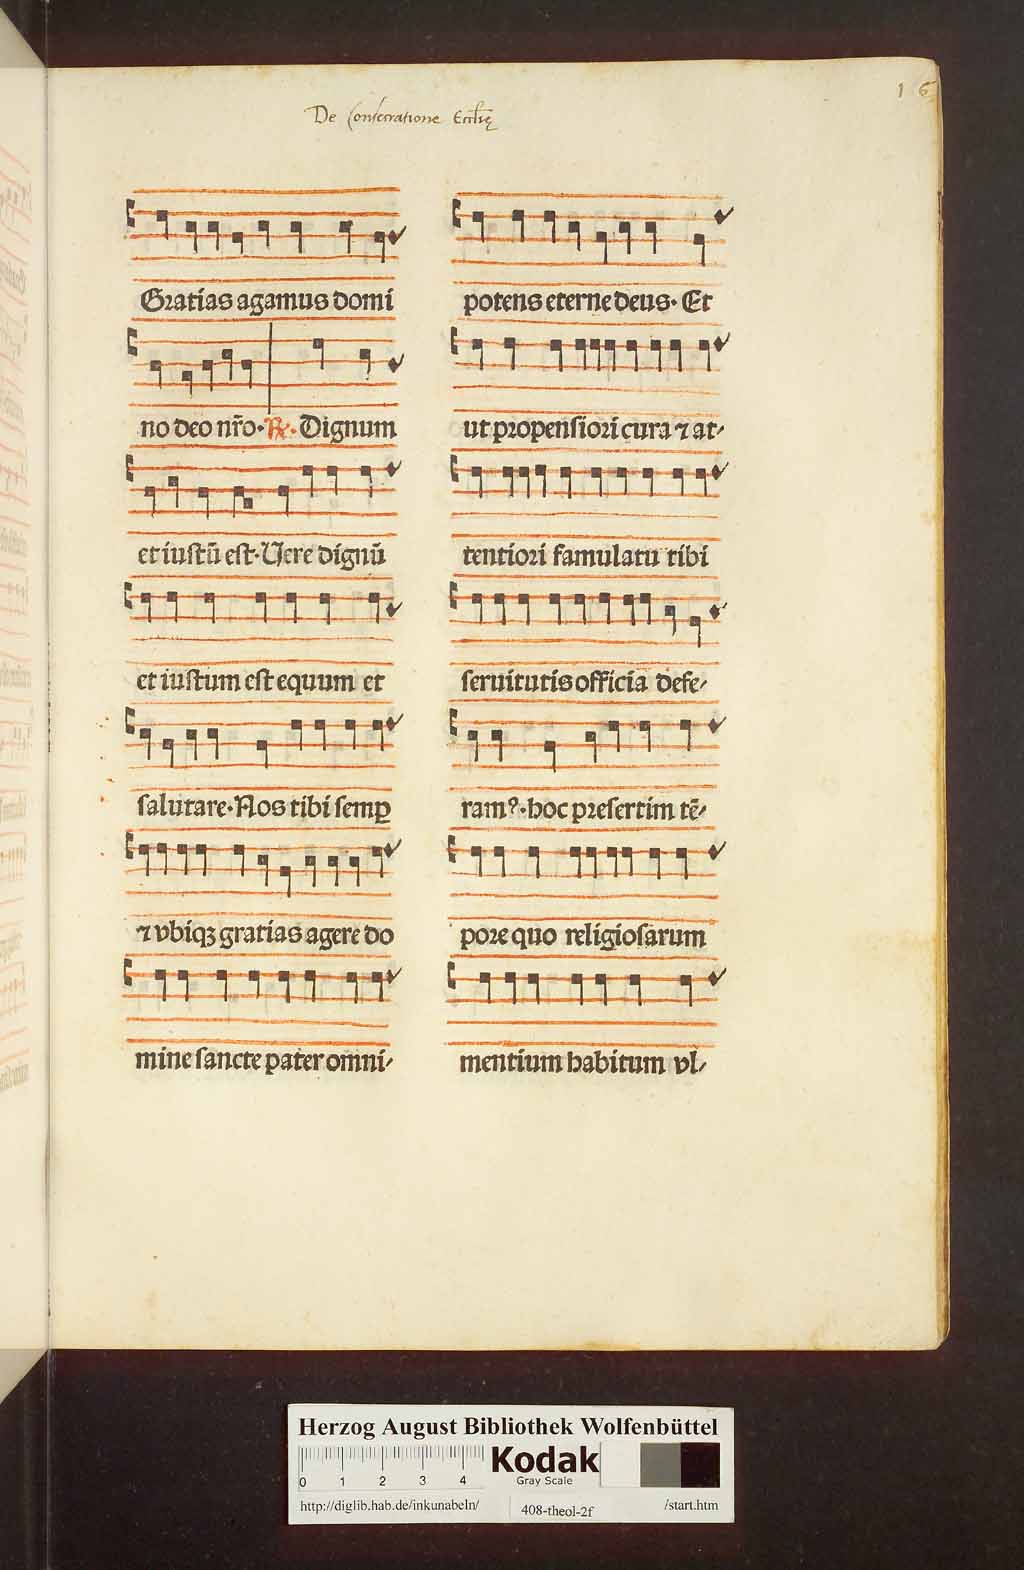 16
De Consecratione Eccl̄ię
Gratias agamus domi
no deo nr̄o. ℟. Dignum
et iustū est. Uere dignū
et iustum est equum et
salutare. Nos tibi semꝑ
⁊ vbiqꝫ gratias agere do
mine sancte pater omni⸗
potens eterne deus. Et
ut propensiori cura ⁊ at⸗
tentiori famulatu tibi
seruitutis officia defe⸗
ram?. hoc presertim tē⸗
pore quo religiosarum
mentium habitum vl⸗
Herzog August Bibliothek Wolfenbüttel
0 1 2 3 4
Kodak
Gray Scale
http://diglib.hab.de/inkunabeln/ 408-theol-2f /start.htm